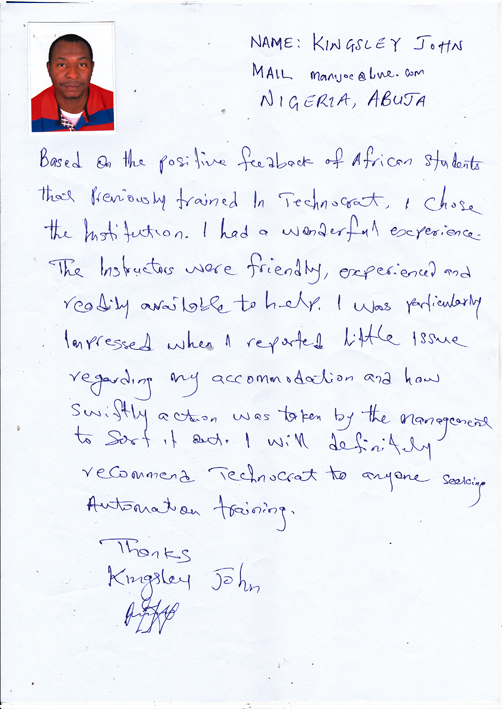 NAME: KINGSLEY JOHN
MAIL manujoc@live.com
NIGERIA, ABUJA
Based on the positive feedback of African students
that previously trained In Technocrat, I chose
the Institution. I had a wonderful experience.
The Instructors were friendly, experienced and
readily available to help. I was particularly
Impressed when I reported little issue
regarding my accommodation and how
swiftly action was taken by the management
to sort it out. I will definitely
recommend Technocrat to anyone seeking
Automation training.
Thanks
Kingsley John